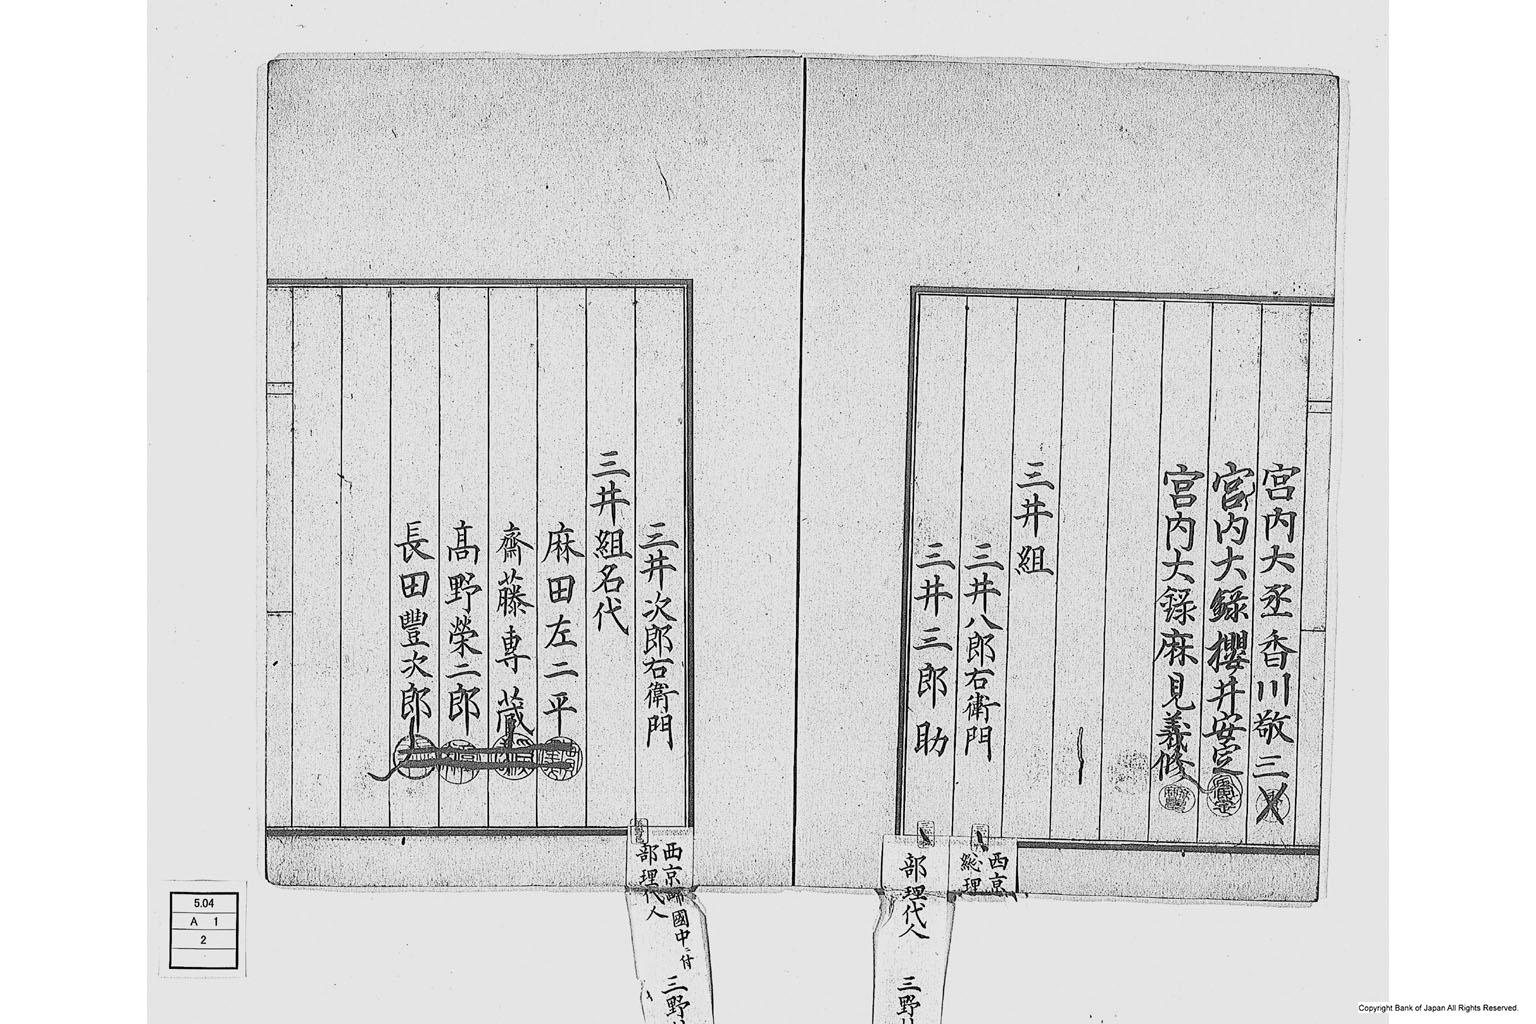 宮内大丞香川敬三
宮内大録櫻井安定
宮内大録麻見義修
三井組
三井八郎右衛門
三井三郎助
西京
総理
部理代人
三野
三井次郎右衛門
三井組名代
麻田左二平
齋藤専蔵
髙野榮二郎
長田豐次郎
西京歸國中ニ付
部理代人
三野
5.04
A 1
2
Copyright Bank of Japan All Rights Reserved.